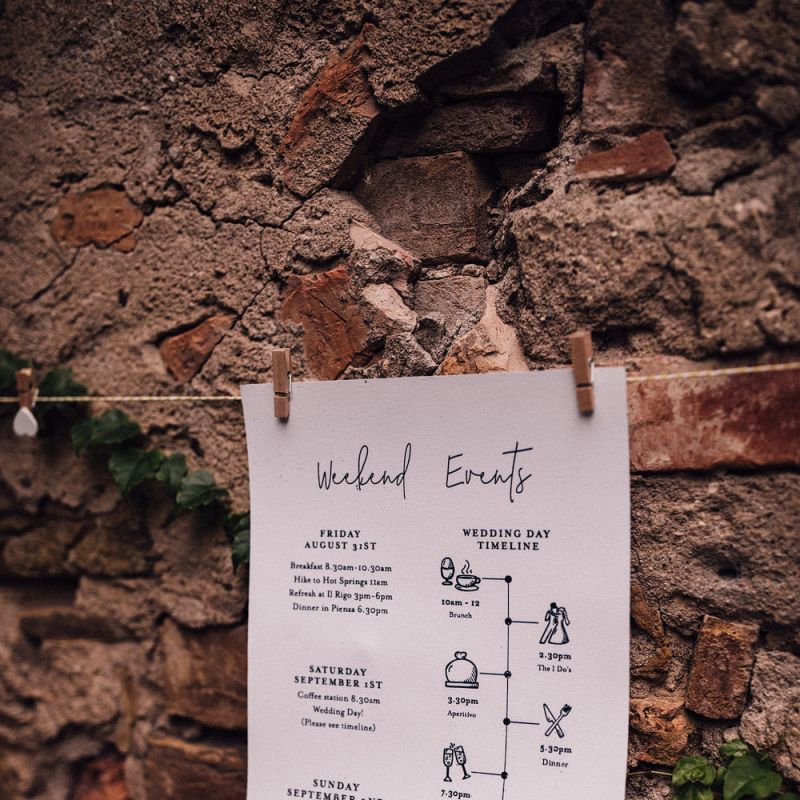 Weekend Events
FRIDAY
AUGUST 31ST
Breakfast 8.30am-10.30am
Hike to Hot Springs 11am
Refresh at Il Rigo 3pm-6pm
Dinner in Pienza 6.30pm
SATURDAY
SEPTEMBER 1ST
Coffee station 8.30am
Wedding Day!
(Please see timeline)
SUNDAY
SEPTEMBER 2ND
WEDDING DAY
TIMELINE
10am - 12
Brunch
2.30pm
The I Do's
3.30pm
Aperitivo
5.30pm
Dinner
7.30pm